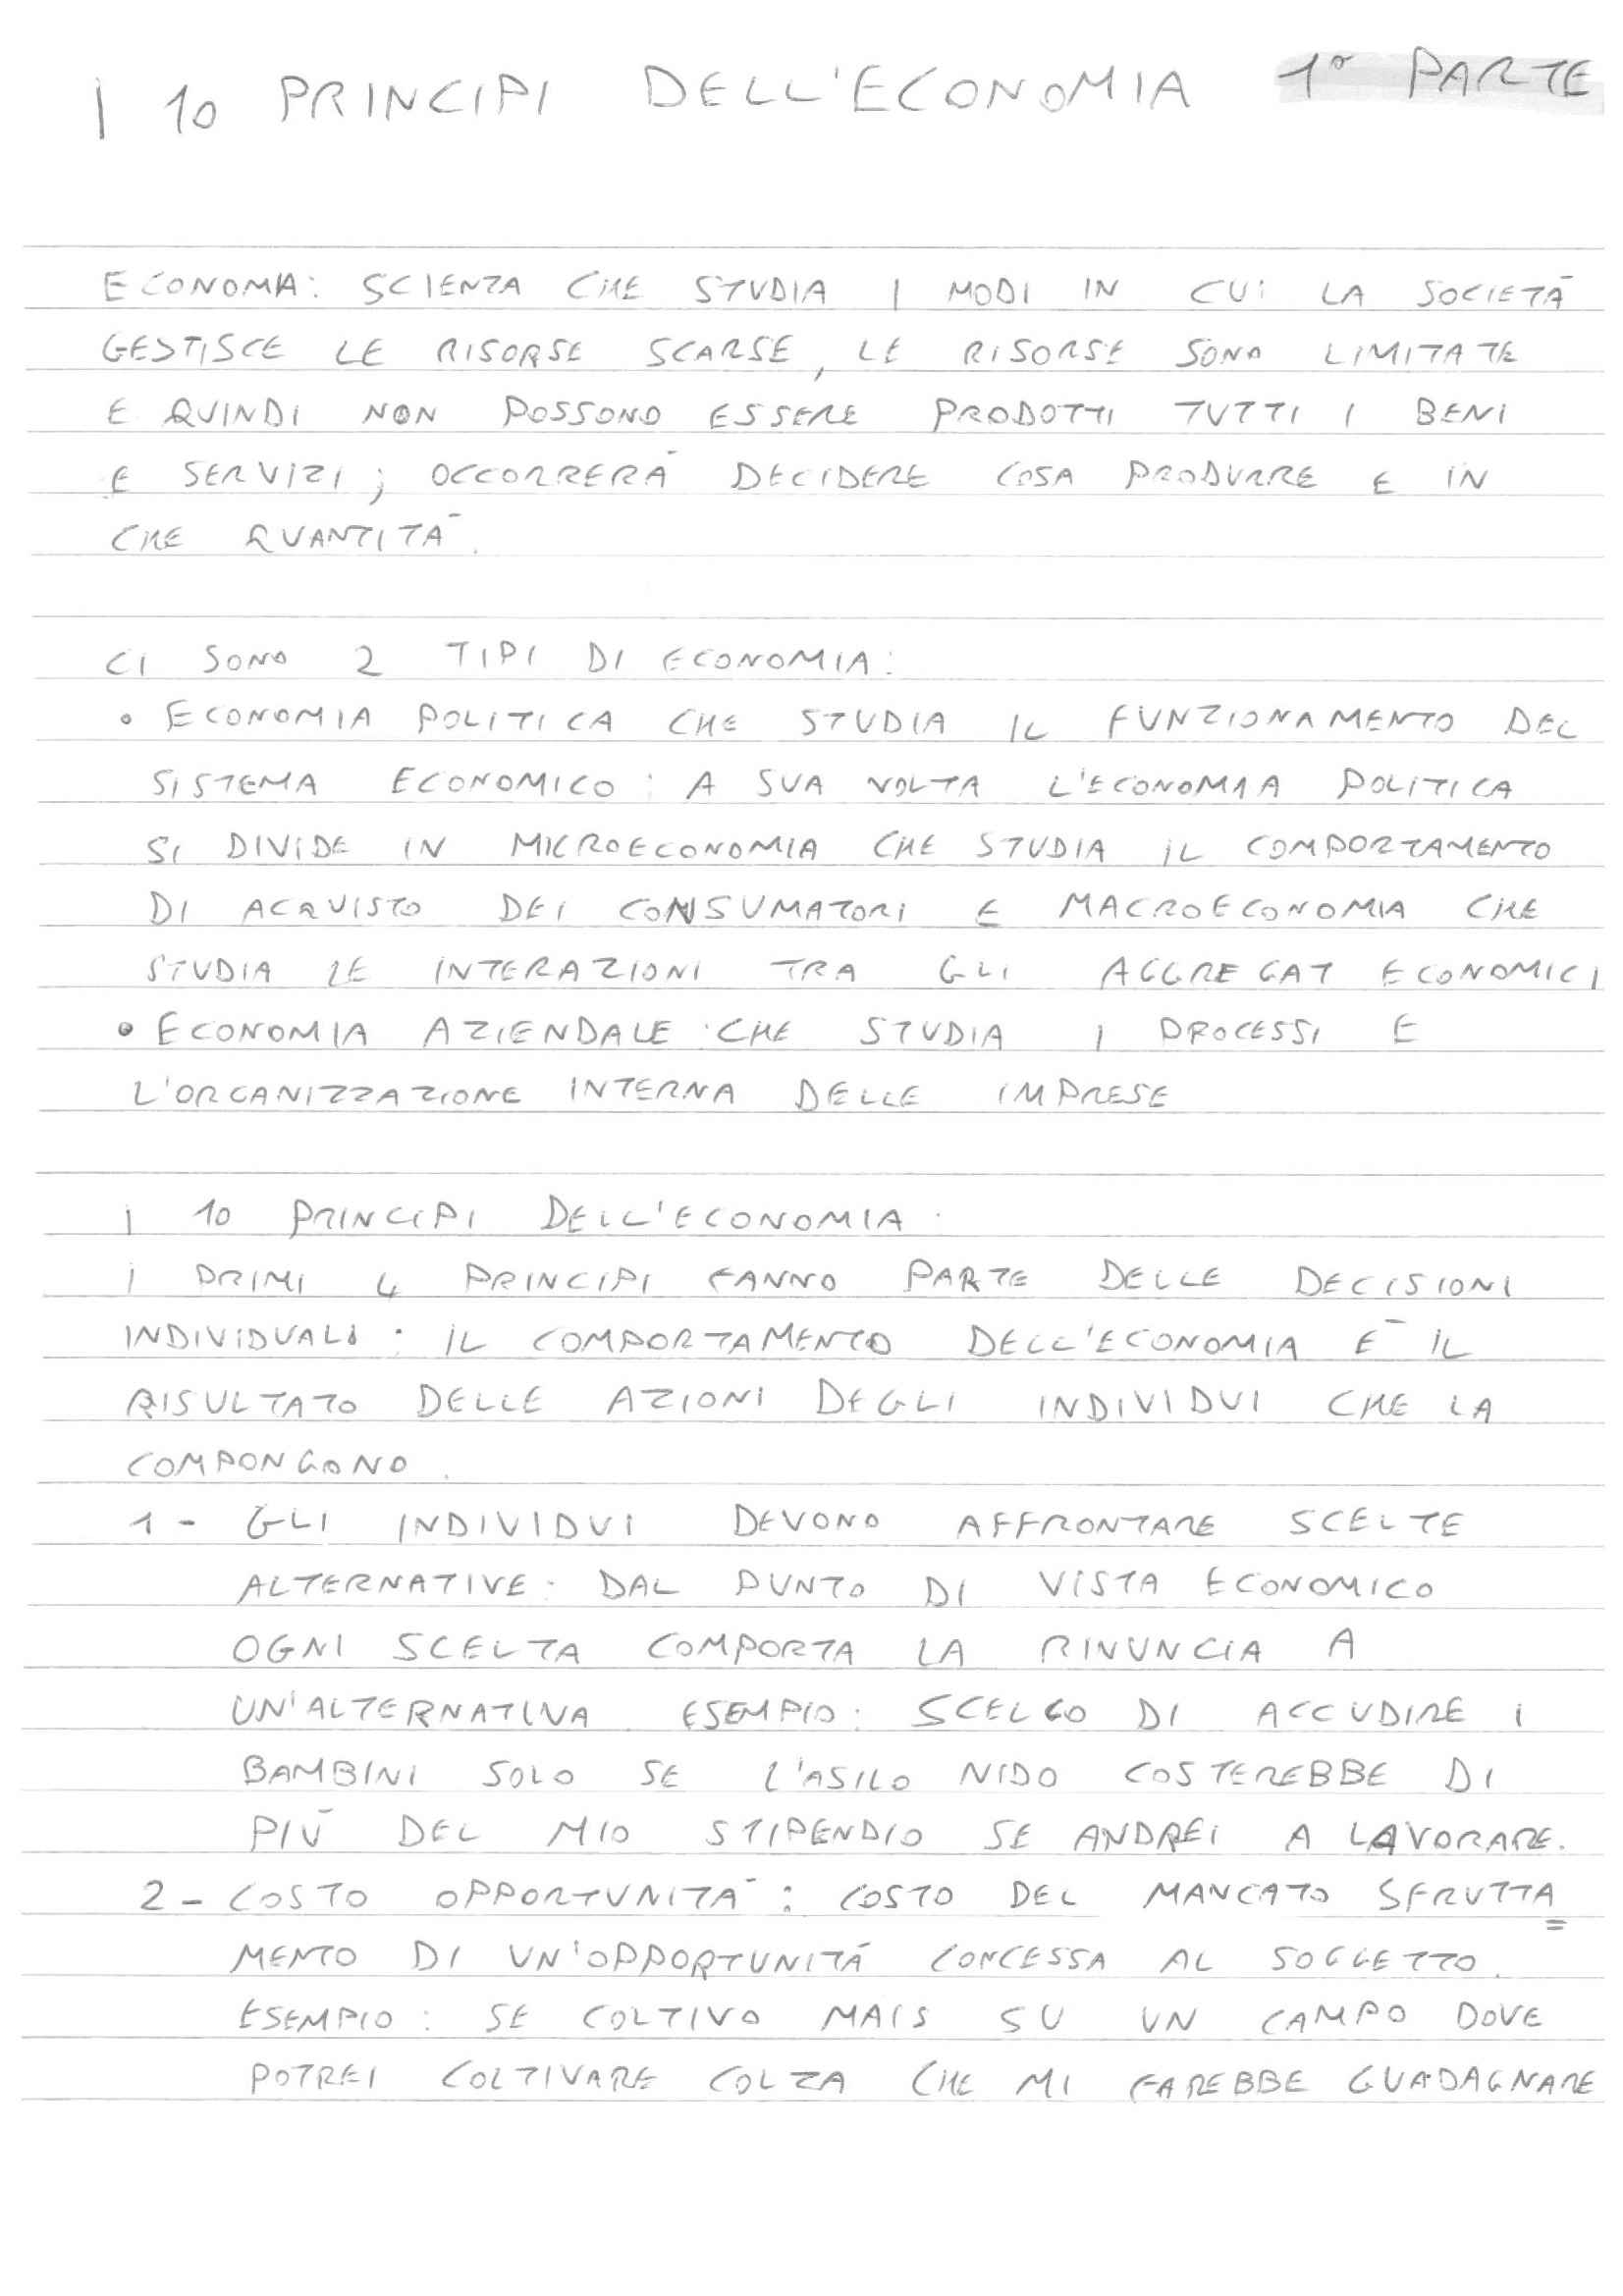 I 10 PRINCIPI DELL'ECONOMIA 1° PARTE
ECONOMIA: SCIENZA CHE STUDIA I MODI IN CUI LA SOCIETÀ
GESTISCE LE RISORSE SCARSE, LE RISORSE SONO LIMITATE
E QUINDI NON POSSONO ESSERE PRODOTTI TUTTI I BENI
E SERVIZI; OCCORRERÀ DECIDERE COSA PRODURRE E IN
CHE QUANTITÀ.
CI SONO 2 TIPI DI ECONOMIA:
• ECONOMIA POLITICA CHE STUDIA IL FUNZIONAMENTO DEL
SISTEMA ECONOMICO: A SUA VOLTA L'ECONOMIA POLITICA
SI DIVIDE IN MICROECONOMIA CHE STUDIA IL COMPORTAMENTO
DI ACQUISTO DEI CONSUMATORI E MACROECONOMIA CHE
STUDIA LE INTERAZIONI TRA GLI AGGREGAT ECONOMICI
• ECONOMIA AZIENDALE CHE STUDIA I PROCESSI E
L'ORGANIZZAZIONE INTERNA DELLE IMPRESE
I 10 PRINCIPI DELL'ECONOMIA:
I PRIMI 4 PRINCIPI FANNO PARTE DELLE DECISIONI
INDIVIDUALI: IL COMPORTAMENTO DELL'ECONOMIA È IL
RISULTATO DELLE AZIONI DEGLI INDIVIDUI CHE LA
COMPONGONO.
1- GLI INDIVIDUI DEVONO AFFRONTARE SCELTE
ALTERNATIVE: DAL PUNTO DI VISTA ECONOMICO
OGNI SCELTA COMPORTA LA RINUNCIA A
UN'ALTERNATIVA. ESEMPIO: SCELGO DI ACCUDIRE I
BAMBINI SOLO SE L'ASILO NIDO COSTEREBBE DI
PIÙ DEL MIO STIPENDIO SE ANDREI A LAVORARE.
2- COSTO OPPORTUNITÀ: COSTO DEL MANCATO SFRUTTA=
MENTO DI UN'OPPORTUNITÀ CONCESSA AL SOGGETTO.
ESEMPIO: SE COLTIVO MAIS SU UN CAMPO DOVE
POTREI COLTIVARE COLZA CHE MI FAREBBE GUADAGNARE